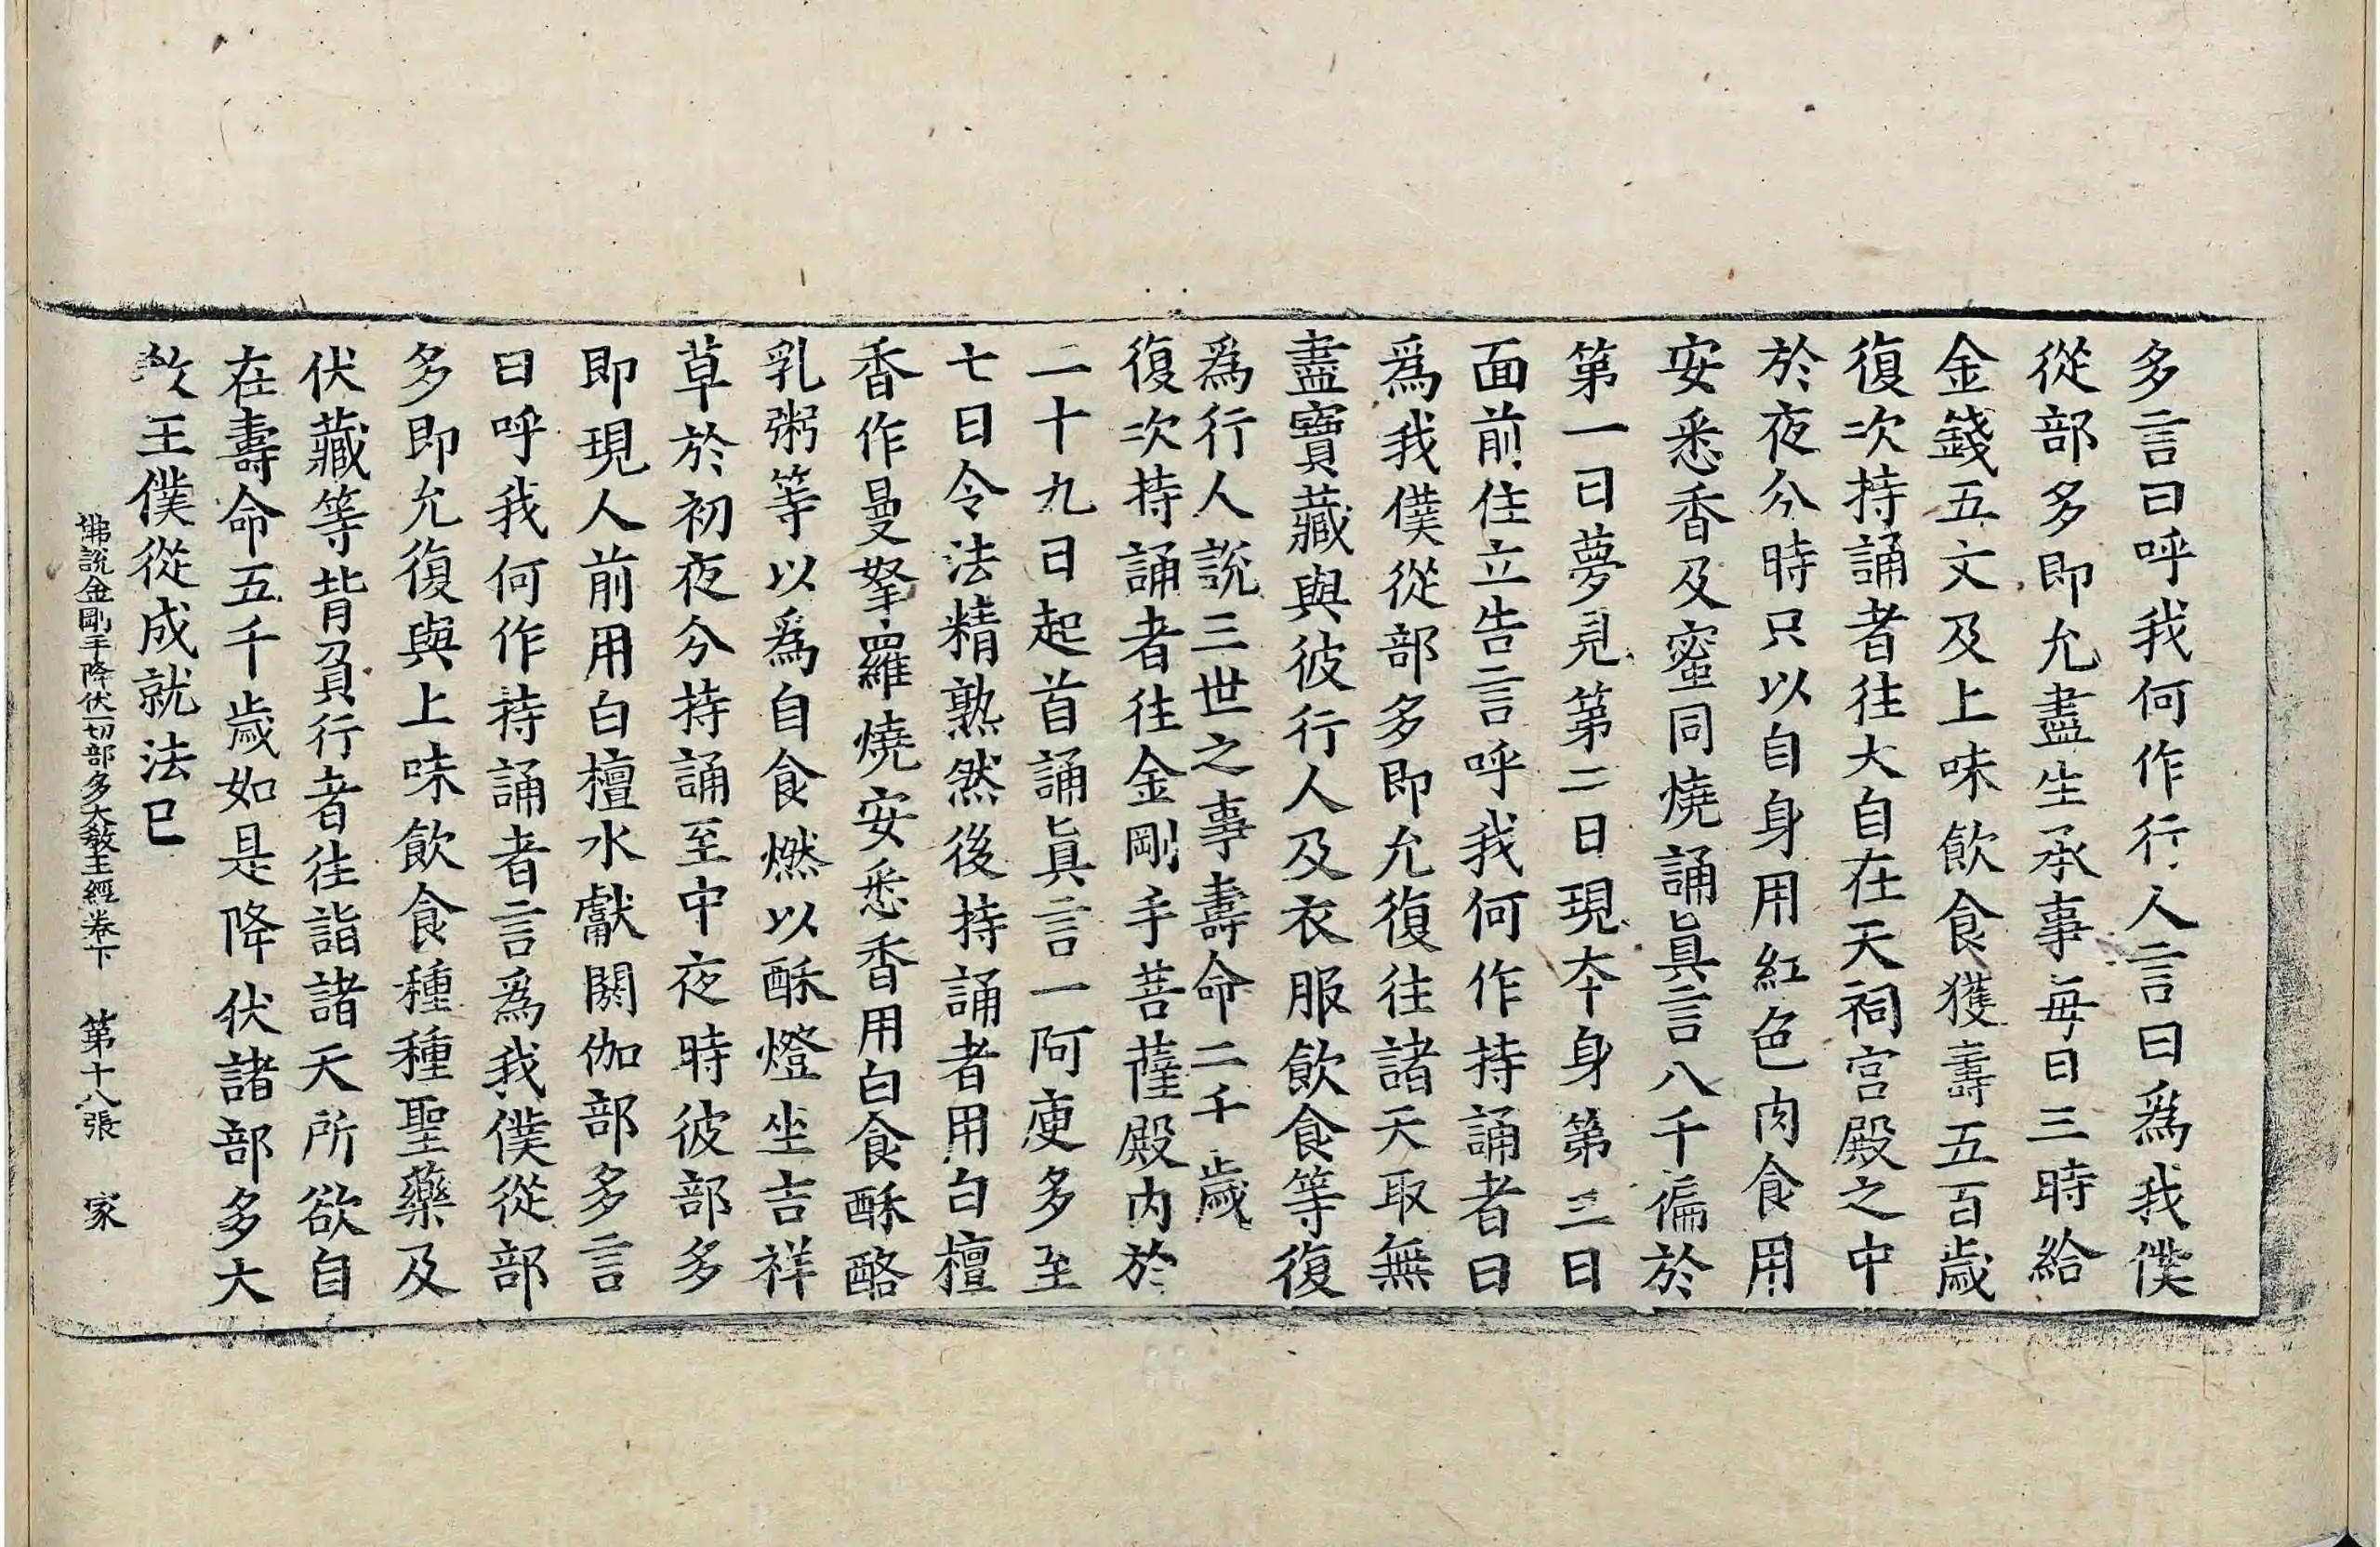 多言曰呼我何作行人言曰爲我僕
從部多即允盡生承事每日三時給
金錢五文及上味飲食獲壽五百歲
復次持誦者往大自在天祠宮殿之中
於夜分時只以自身用紅色肉食用
安悉香及蜜同燒誦眞言八千徧於
第一日夢見第二日現本身第三日
面前住立告言呼我何作持誦者曰
爲我僕從部多即允復往諸天取無
盡寶藏與彼行人及衣服飲食等復
爲行人說三世之事壽命二千歲
復次持誦者往金剛手菩薩殿內於
二十九日起首誦眞言一阿庾多至
七日令法精熟然後持誦者用白檀
香作曼拏羅燒安悉香用白食酥酪
乳粥等以爲自食燃以酥燈坐吉祥
草於初夜分持誦至中夜時彼部多
即現人前用白檀水獻閼伽部多言
曰呼我何作持誦者言爲我僕從部
多即允復與上味飲食種種聖藥及
伏藏等背負行者往詣諸天所欲自
在壽命五千歲如是降伏諸部多大
教王僕從成就法已
佛說金剛手降伏一切部多大敎王經卷下　第十八張　家